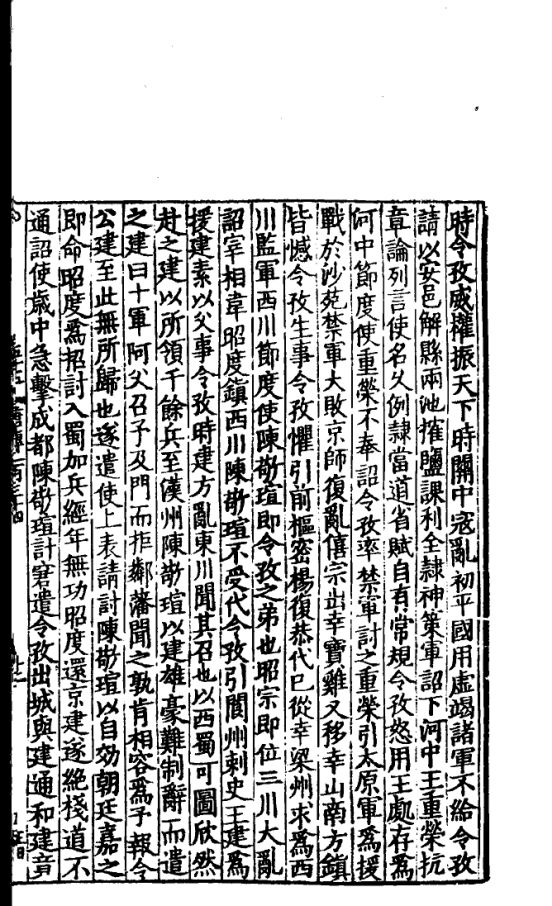 時令孜威權振天下時關中寇亂初平國用虛竭諸軍不給令孜
請以安邑解縣兩池搉鹽課利全隸神策軍詔下河中王重榮抗
章論列言使名久例隸當道省賦自有常規令孜怒用王處存為
河中節度使重榮不奉詔令孜率禁軍討之重榮引太原軍爲援
戰於沙苑禁軍大敗京師復亂僖宗出幸寶雞又移幸山南方鎮
皆憾令孜生事令孜懼引前樞密楊復恭代己從幸梁州求爲西
川監軍西川節度使陳敬瑄即令孜之弟也昭宗即位三川大亂
詔宰相韋昭度鎮西川陳敬瑄不受代令孜引閬州刺史王建爲
援建素以父事令孜時建方亂東川聞其召也以西蜀可圖欣然
赴之建以所領千餘兵至漢州陳敬瑄以建雄豪難制辭而遣
之建曰十軍阿父召子及門而拒鄰藩聞之孰肯相容爲予報令
公建至此無所歸也遂遣使上表請討陳敬瑄以自効朝廷嘉之
即命昭度爲招討入蜀加兵經年無功昭度還京建遂絶棧道不
通詔使歲中急擊成都陳敬瑄計窘遣令孜出城與建通和建音